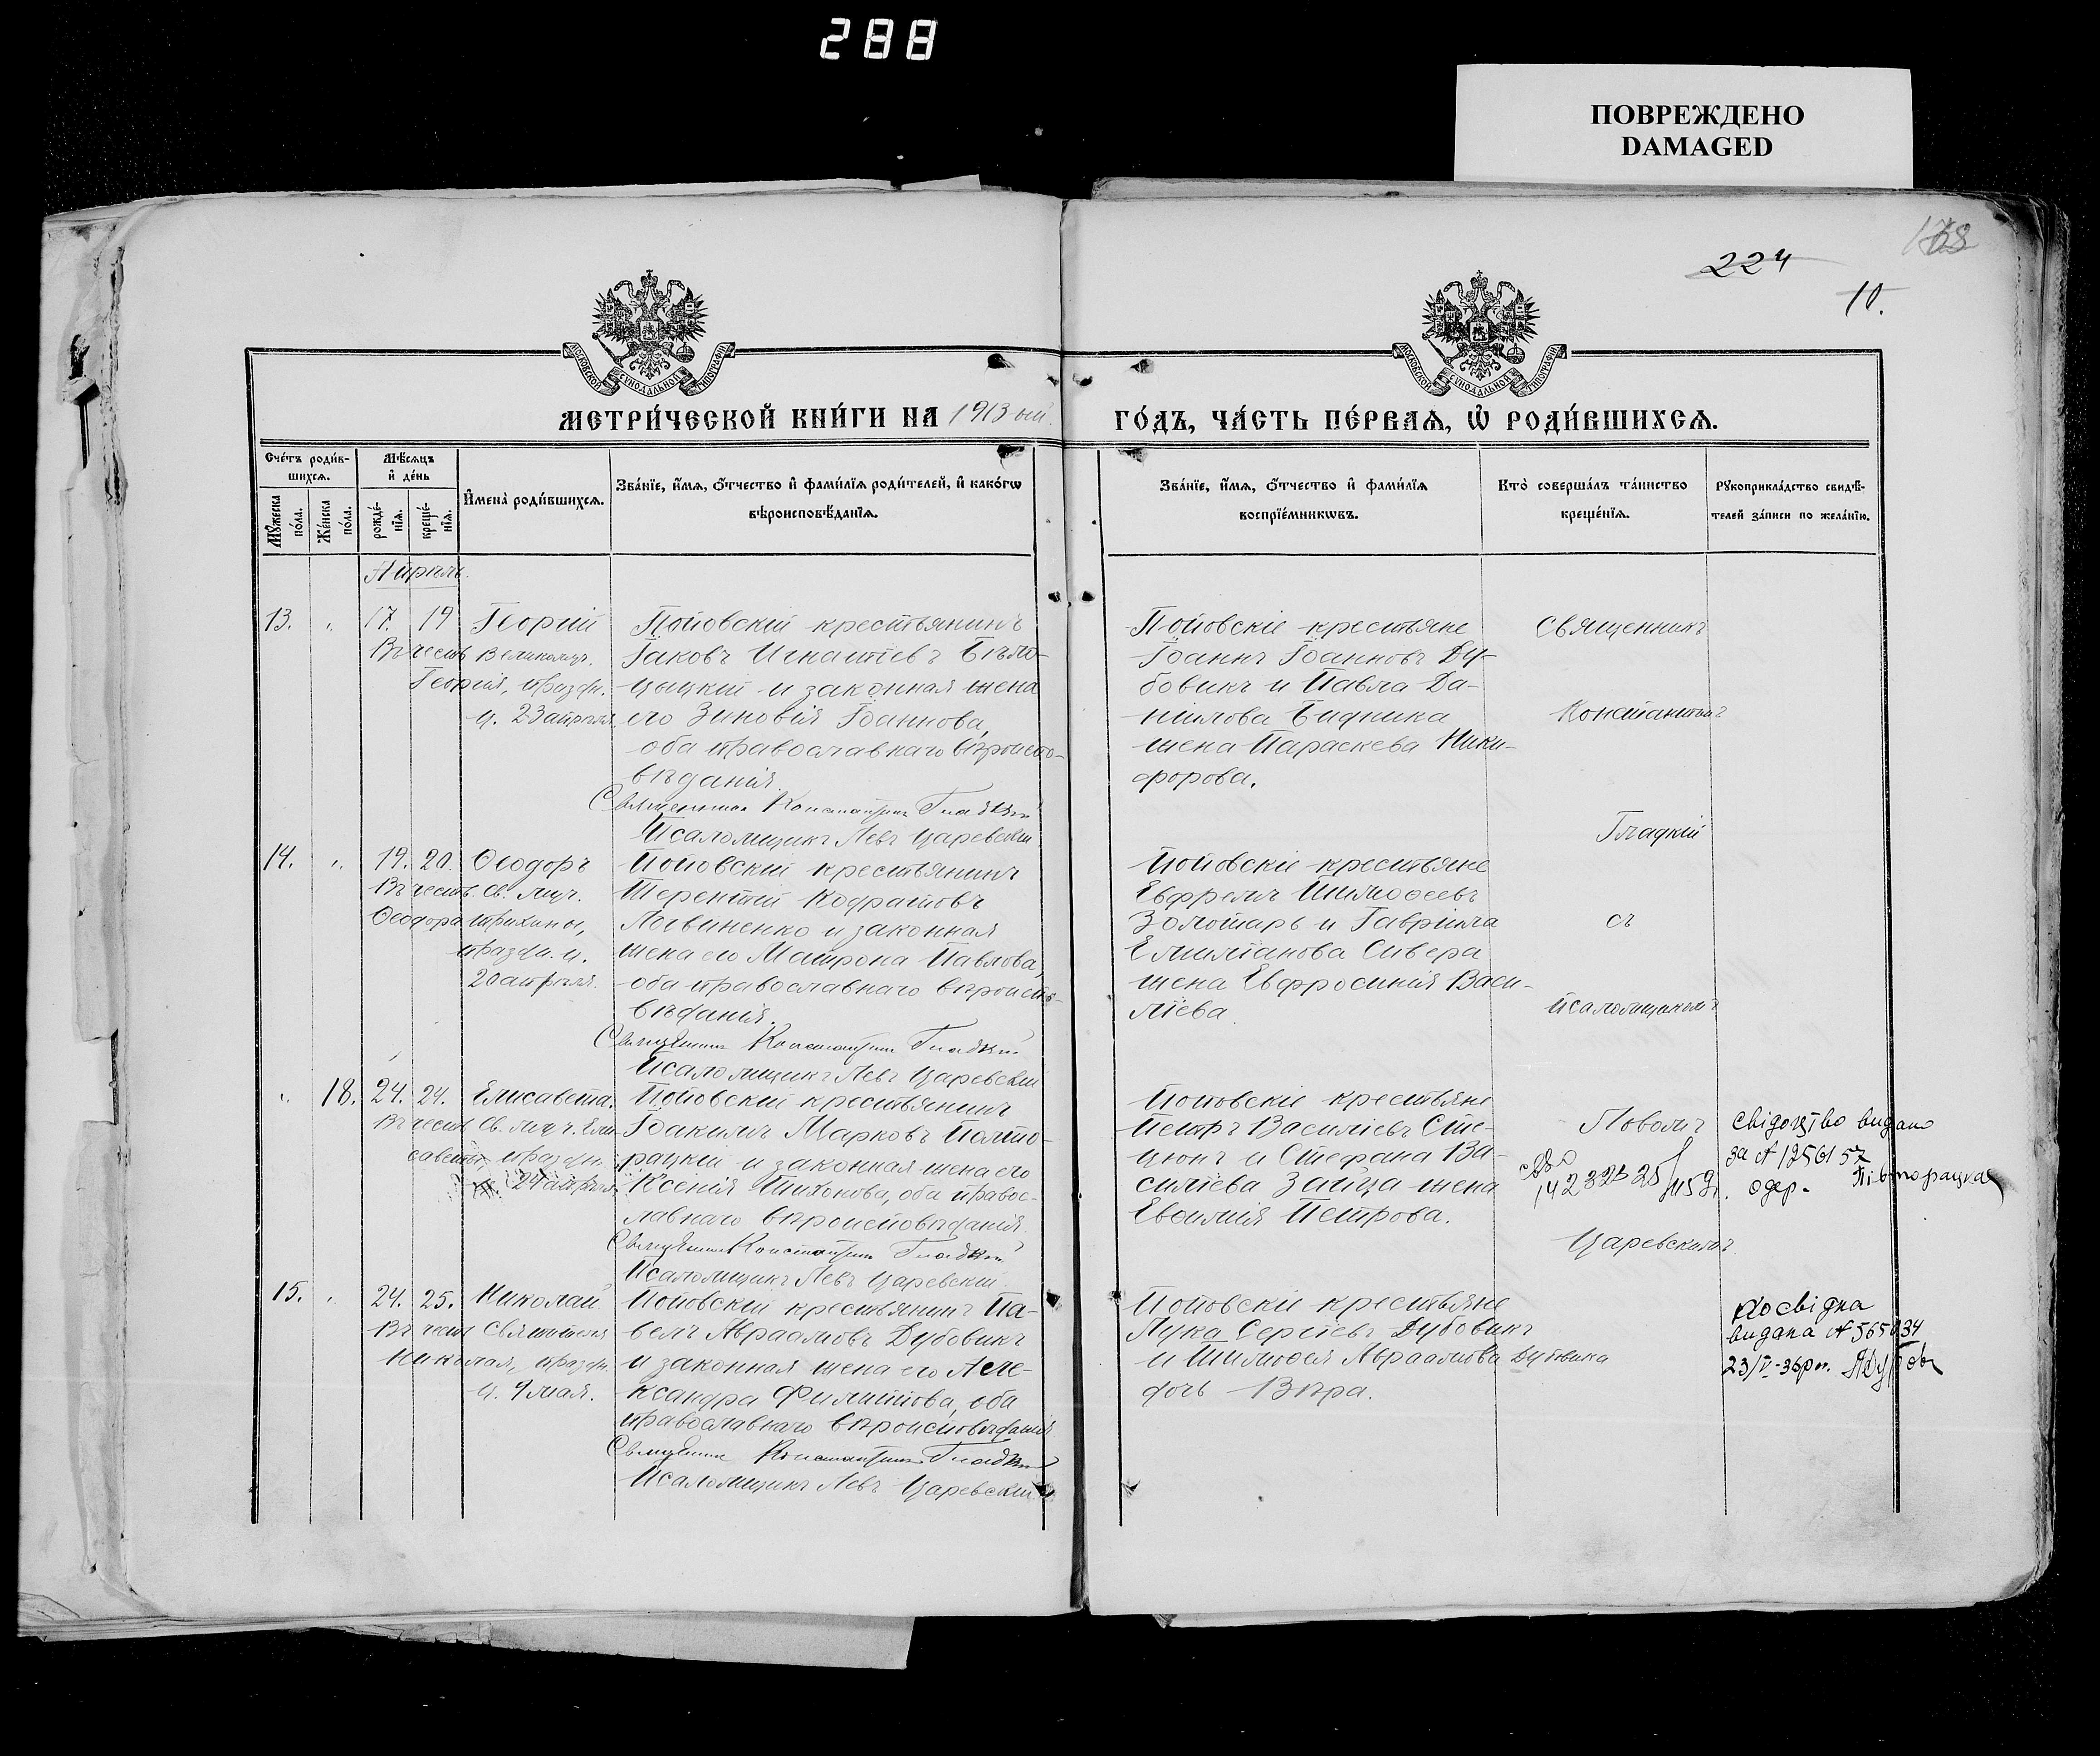 288
ПОВРЕЖДЕНО
DAMAGED
168
224
10.
МОСКОВСКОЙ СѴНОДАЛЬНОЙ ТИПОГРАФІИ
МОСКОВСКОЙ СѴНОДАЛЬНОЙ ТИПОГРАФІИ
МЕТРИ́ЧЕСКОЙ КНИ́ГИ НА 1913-ый
ГО́ДЪ, ЧА́СТЬ ПЕ́РВАѦ, Ѡ҆ РОДИ́ВШИХСѦ.
Сче́тъ роди́в-
шихсѧ.
Мꙋжеска по́ла.
Же́нска по́ла.
Мѣ́сѧцъ
и҆ де́нь
рожде́-
нїѧ.
креще́-
нїѧ.
И҆мена̀ роди́вшихсѧ.
Зва́нїе, и҆́мѧ, ѻ҆́тчество и҆ фами́лїѧ роди́телей, и҆ како́гѡ
вѣроисповѣ́данїѧ.
Зва́нїе, и҆́мѧ, ѻ҆́тчество и҆ фами́лїѧ
воспрїе́мникѡвъ.
Кто̀ соверша́лъ та́инство
креще́нїѧ.
Рꙋкоприкла́дство свидѣ́-
телей за́писи по жела́нїю.
Апрѣль.
13. " 17. 19 Георгій
Въ честь Великомуч.
Георгія, праздн.
ч. 23 апрѣля
Поповскій крестьянинъ
Іаковъ Игнатіевъ Бѣло-
цыцкій и законная жена
его Зиновія Іоаннова,
оба православнаго вѣроиспо-
вѣданія.
Священникъ Константинъ Гладкій
Псаломщикъ Левъ Царевскій
Поповскіе крестьяне
Іоаннъ Іоанновъ Ду-
бовикъ и Павла Да-
нилова Бидника
жена Параскева Ники-
форова.
Священникъ
Константинъ
Гладкій
14. " 19. 20. Ѳеодоръ
Въ честь Св. муч.
Ѳеодора Трихины,
праздн. ч.
20 апрѣля.
Поповскій крестьянинъ
Терентій Кодратовъ
Логвиненко и законная
жена его Матрона Павлова,
оба православнаго вѣроиспо-
вѣданія.
Священникъ Константинъ Гладкій
Псаломщикъ Левъ Царевскій
Поповскіе крестьяне
Евфремъ Тимоѳеевъ
Золотарь и Гавріила
Емиліанова Сивера
жена Евфросинія Васи-
ліева
съ
псаломщикомъ
" 18. 24. 24. Елисавета.
Въ честь Св. муч. Ели-
саветы, праздн.
ч. 24 апрѣля
Поповскій крестьянинъ
Іоакимъ Марковъ Полто-
рацкій и законная жена его
Ксенія Тихонова, оба правос-
лавнаго вѣроисповѣданія.
Священникъ Константинъ Гладкій
Псаломщикъ Левъ Царевскій.
Поповскіе крестьяне
Петръ Василіевъ Сте-
цюнъ и Стефана Ва-
силіева Зайца жена
Евѳимія Петрова.
Львомъ
Царевскимъ.
свідоцтво видано
за № 1256157
одер. Півторацька
15. " 24. 25. Николай
Въ честь Святителя
Николая, праздн.
ч. 9 мая.
Поповскій крестьянинъ Па-
велъ Авраамовъ Дубовикъ
и законная жена его Але-
ксандра Филиппова, оба
православнаго вѣроисповѣданія
Священникъ Константинъ Гладкій
Псаломщикъ Левъ Царевскій
Поповскіе крестьяне
Лука Сергіевъ Дубовикъ
и Тимоѳея Авраамова Дубовика
дочь Вѣра.
Посвідка
видана № 565034
23/V-36р.